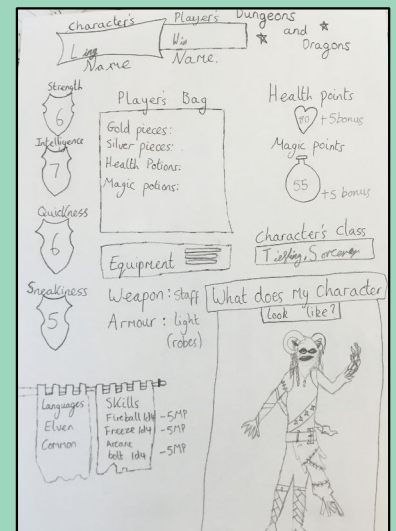 Character's
Name
Player's
Win
Name.
Dungeons
and
Dragons
Strength
6
Intelligence
7
Quickness
6
Sneakiness
5
Player's Bag
Gold pieces:
Silver pieces:
Health Potions:
Magic potions:
Equipment
Weapon: Staff
Armour: light
(robes)
Health points
+5bonus
Magic points
55
+5 bonus
Character's class
Tiefling, Sorcerer
What does My Character
Look like?
Languages
Elven
Common
Skills
Fireball 1d4 -5MP
Freeze 1d4 -5MP
Arcane
bolt 1d4 -5MP